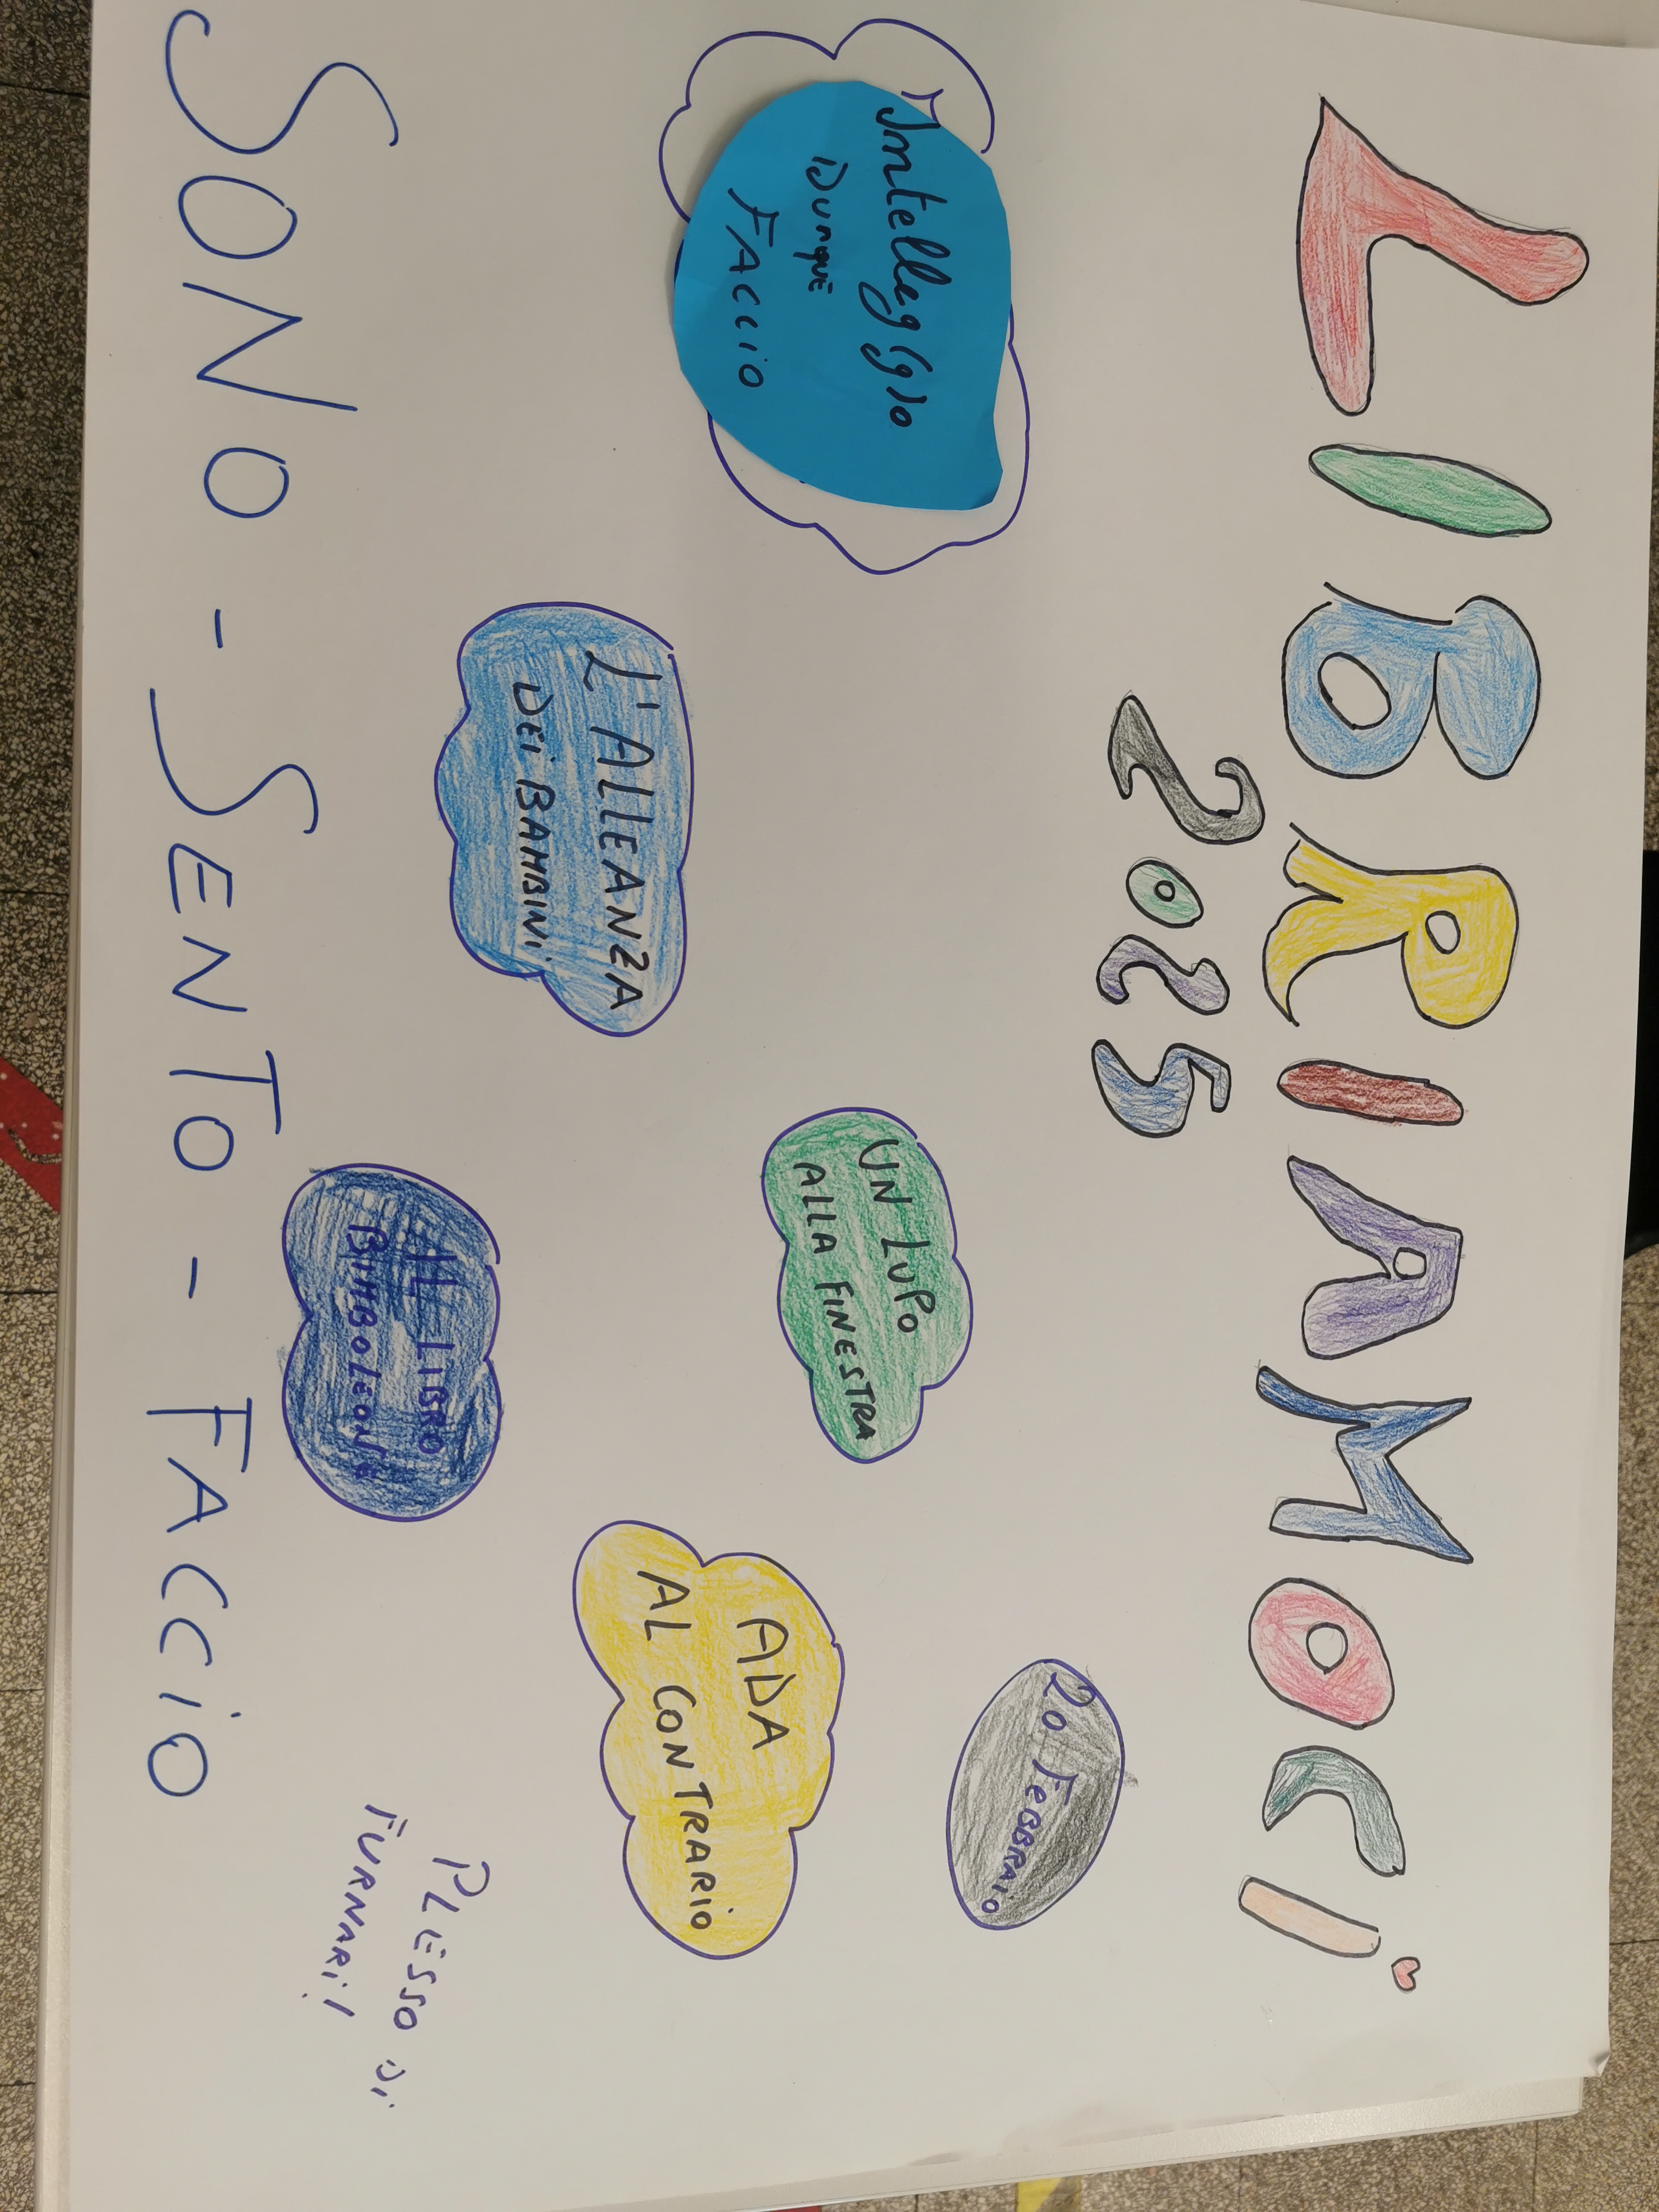 LIBRIAMOCI
2025
Intelleg(g)o
DUNQUE
FACCIO
20 FEBBRAIO
UN LUPO
ALLA FINESTRA
L'ALLEANZA
DEI BAMBINI
ADA
AL CONTRARIO
IL LIBRO
BIMBOLEONE
PLESSO Di
FURNARi!
SONO - SENTO - FACCiO